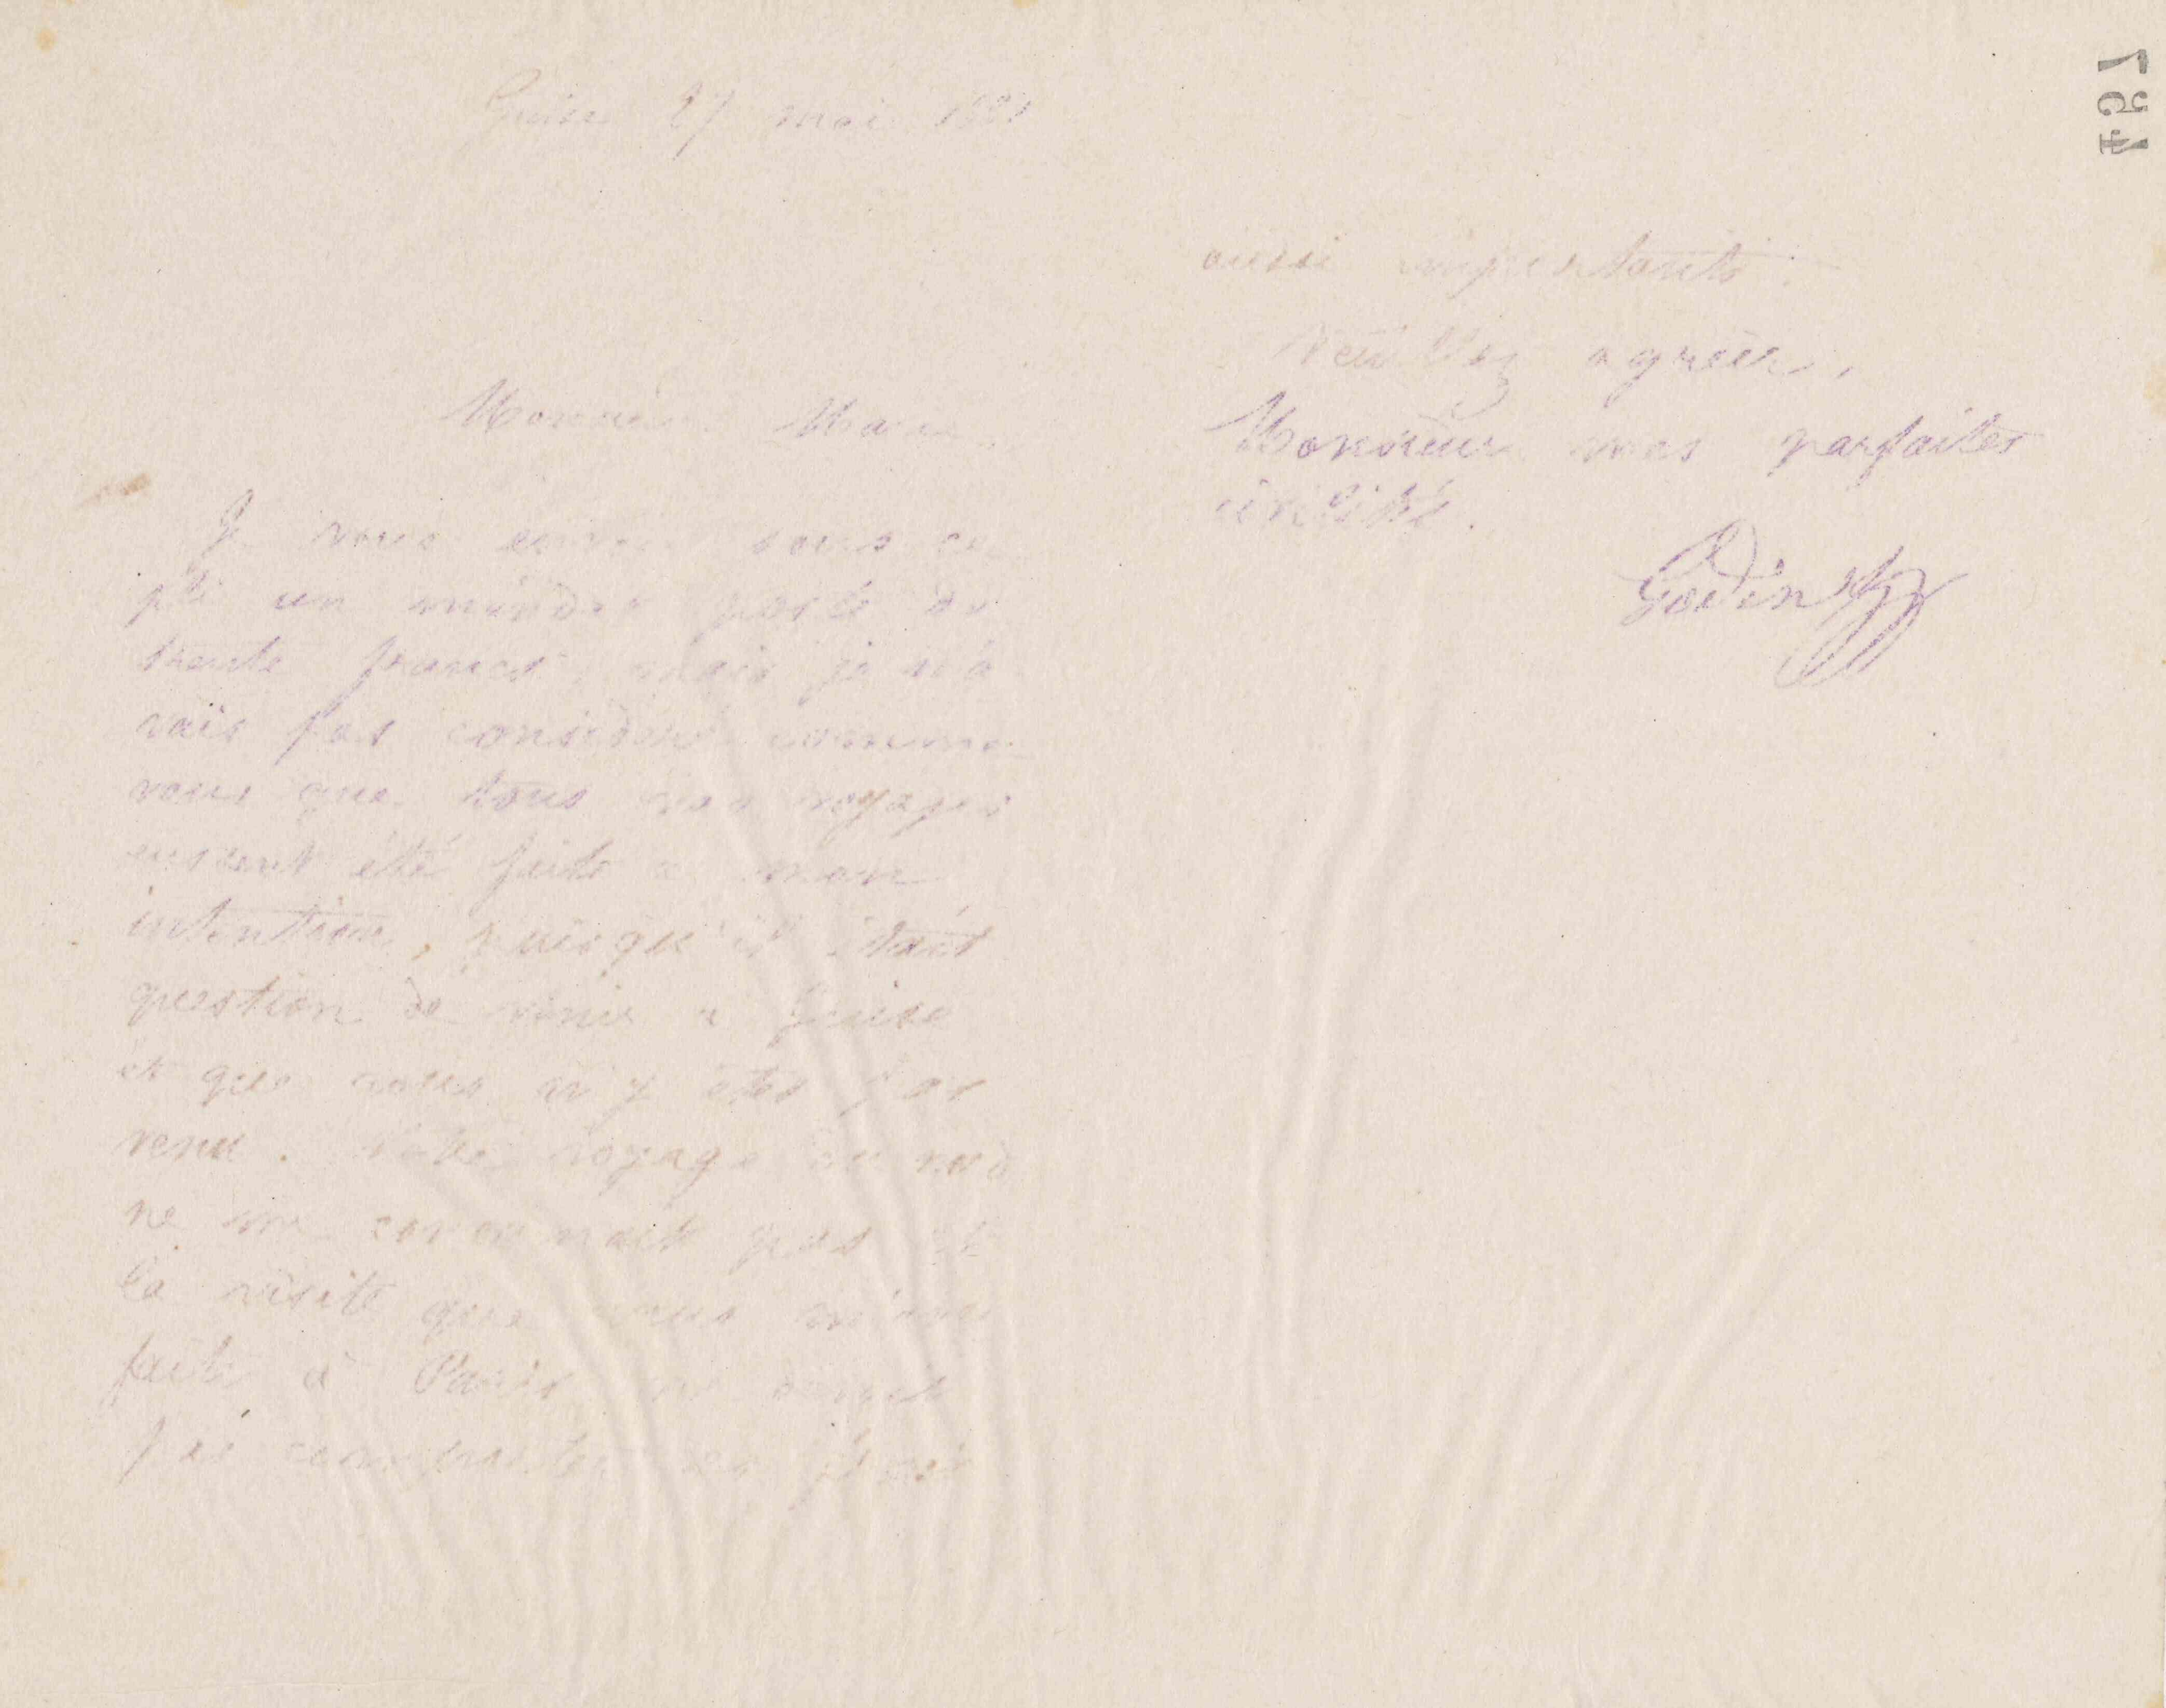 Guise 27 mai
Monsieur
Je vous envoie sous ce
pli un mandat poste de
trente francs mais je n'a
vais pas considéré comme
vous que tous vos voyages
eussent été faits à mon
intention, puisqu'il était
question de venir à Guise
et que vous n'y êtes pas
venu. votre voyage au nord
ne me concernait pas et
la visite que vous m'avez
faite à Paris ne
pas
aussi importants.
Veuillez agréer,
Monsieur mes parfaites
civilités.
Godin
457